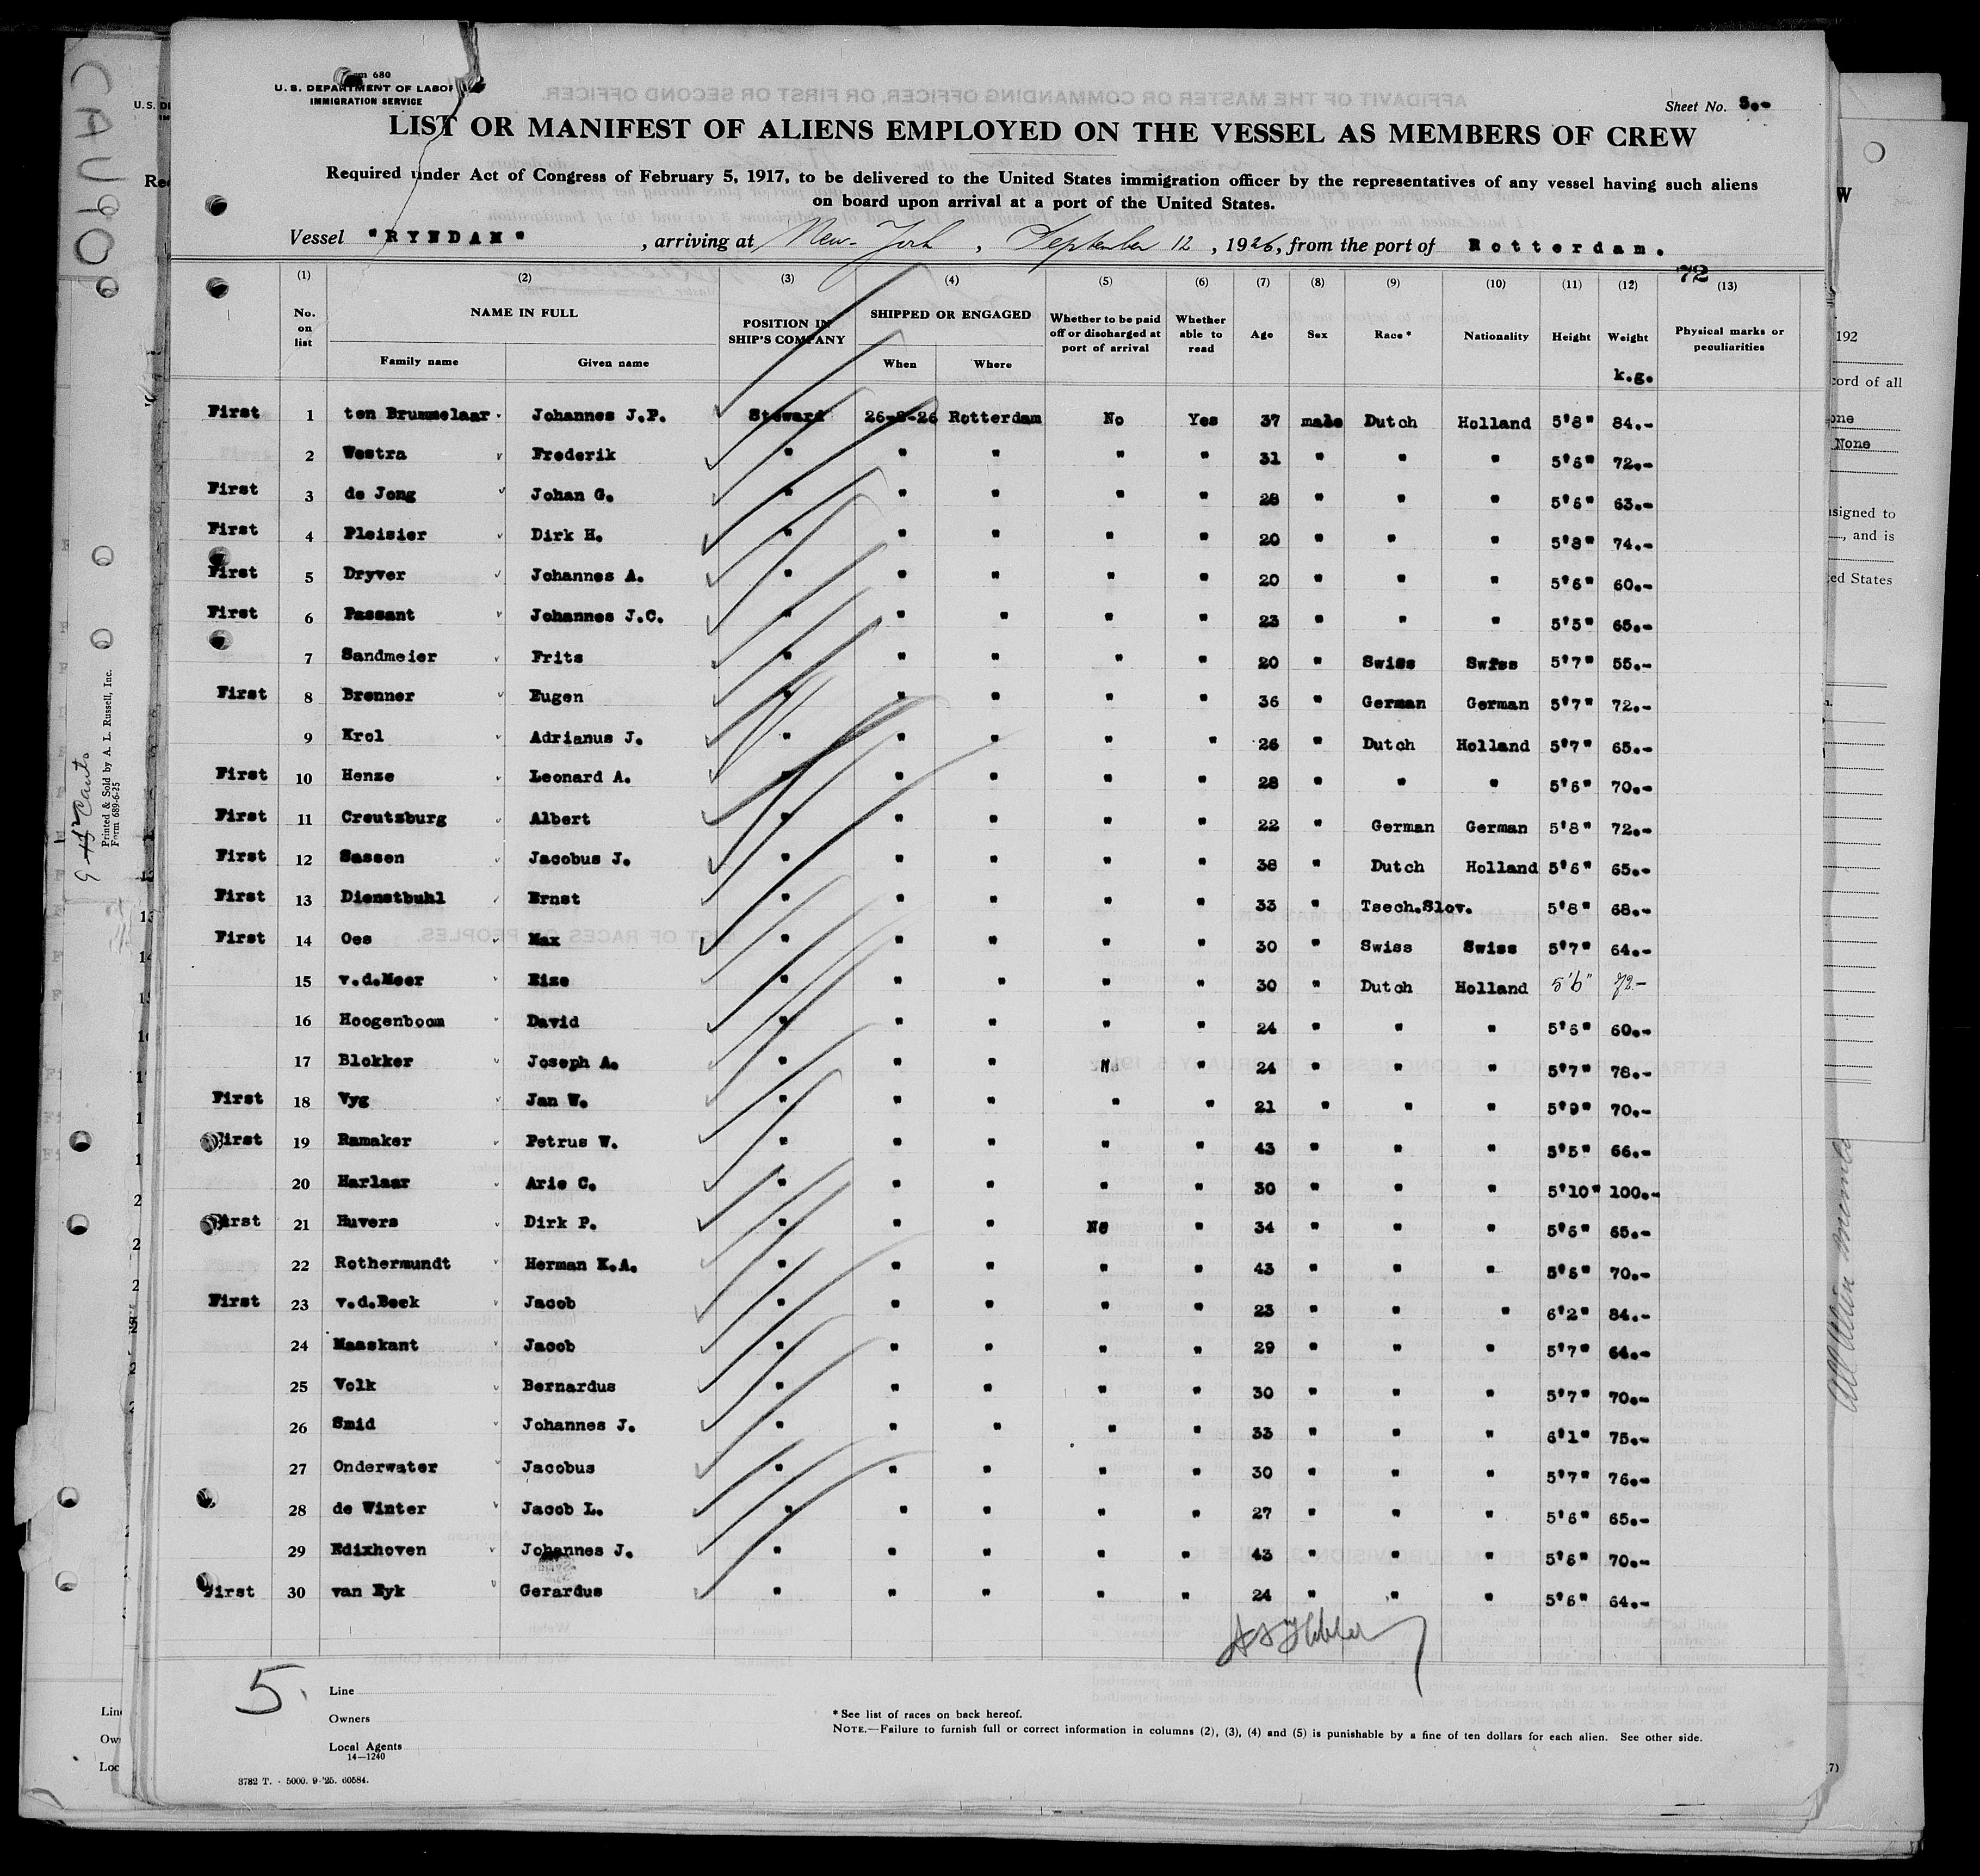 Form 680
U. S. DEPARTMENT OF LABOR
IMMIGRATION SERVICE
Sheet No. 5.-
LIST OR MANIFEST OF ALIENS EMPLOYED ON THE VESSEL AS MEMBERS OF CREW
Required under Act of Congress of February 5, 1917, to be delivered to the United States immigration officer by the representatives of any vessel having such aliens
on board upon arrival at a port of the United States.
Vessel "RYNDAM" , arriving at New-York , September 12 , 1926, from the port of Rotterdam.
72
(1) (2) (3) (4) (5) (6) (7) (8) (9) (10) (11) (12) (13)
No. on list NAME IN FULL Family name Given name POSITION IN SHIP'S COMPANY SHIPPED OR ENGAGED When Where Whether to be paid off or discharged at port of arrival Whether able to read Age Sex Race* Nationality Height Weight Physical marks or peculiarities
k.g.
First 1 ten Brummelaar Johannes J.P. Steward 26-8-26 Rotterdam No Yes 37 male Dutch Holland 5'8" 84.-
2 Westra Frederik " " " " " 31 " " " 5'6" 72.-
First 3 de Jong Johan G. " " " " " 28 " " " 5'6" 63.-
First 4 Pleisier Dirk H. " " " " " 20 " " " 5'8" 74.-
First 5 Dryver Johannes A. " " " " " 20 " " " 5'6" 60.-
First 6 Passant Johannes J.C. " " " " " 23 " " " 5'5" 65.-
7 Sandmeier Frits " " " " " 20 " Swiss Swiss 5'7" 55.-
First 8 Brenner Eugen " " " " " 36 " German German 5'7" 72.-
9 Krol Adrianus J. " " " " " 26 " Dutch Holland 5'7" 65.-
First 10 Henze Leonard A. " " " " " 28 " " " 5'6" 70.-
First 11 Creutzburg Albert " " " " " 22 " German German 5'8" 72.-
First 12 Sassen Jacobus J. " " " " " 38 " Dutch Holland 5'6" 65.-
First 13 Dienstbuhl Ernst " " " " " 33 " Tsech.Slov. 5'8" 68.-
First 14 Oes Max " " " " " 30 " Swiss Swiss 5'7" 64.-
15 v.d.Meer Eize " " " " " 30 " Dutch Holland 5'6" 72-
16 Hoogenboom David " " " " " 24 " " " 5'6" 60.-
17 Blokker Joseph A. " " " " 24 " " " 5'7" 78.-
First 18 Vyg Jan W. " " " " " 21 " " " 5'9" 70.-
First 19 Ramaker Petrus W. " " " " " 43 " " " 5'5" 66.-
20 Harlaar Arie C. " " " " " 30 " " " 5'10" 100.-
First 21 Huvers Dirk P. " " " No " 34 " " " 5'6" 65.-
22 Rothermundt Herman K.A. " " " " " 43 " " " 5'6" 70.-
First 23 v.d.Beek Jacob " " " " " 23 " " " 6'2" 84.-
24 Maaskant Jacob " " " " " 29 " " " 5'7" 64.-
25 Volk Bernardus " " " " " 30 " " " 5'7" 70.-
26 Smid Johannes J. " " " " " 33 " " " 6'1" 75.-
27 Onderwater Jacobus " " " " " 30 " " " 5'7" 76.-
28 de Winter Jacob L. " " " " " 27 " " " 5'6" 65.-
29 Edixhoven Johannes J. " " " " " 43 " " " 5'6" 70.-
First 30 van Eyk Gerardus " " " " " 24 " " " 5'6" 64.-
5.
Line
Owners
Local Agents
14—1240
* See list of races on back hereof.
NOTE.—Failure to furnish full or correct information in columns (2), (3), (4) and (5) is punishable by a fine of ten dollars for each alien. See other side.
3782 T. - 5000. 9-'25. 60584.
Printed & Sold by A. L. Russell, Inc.
Form 689-6-25
192
cord of all
one
None
signed to
, and is
ed States